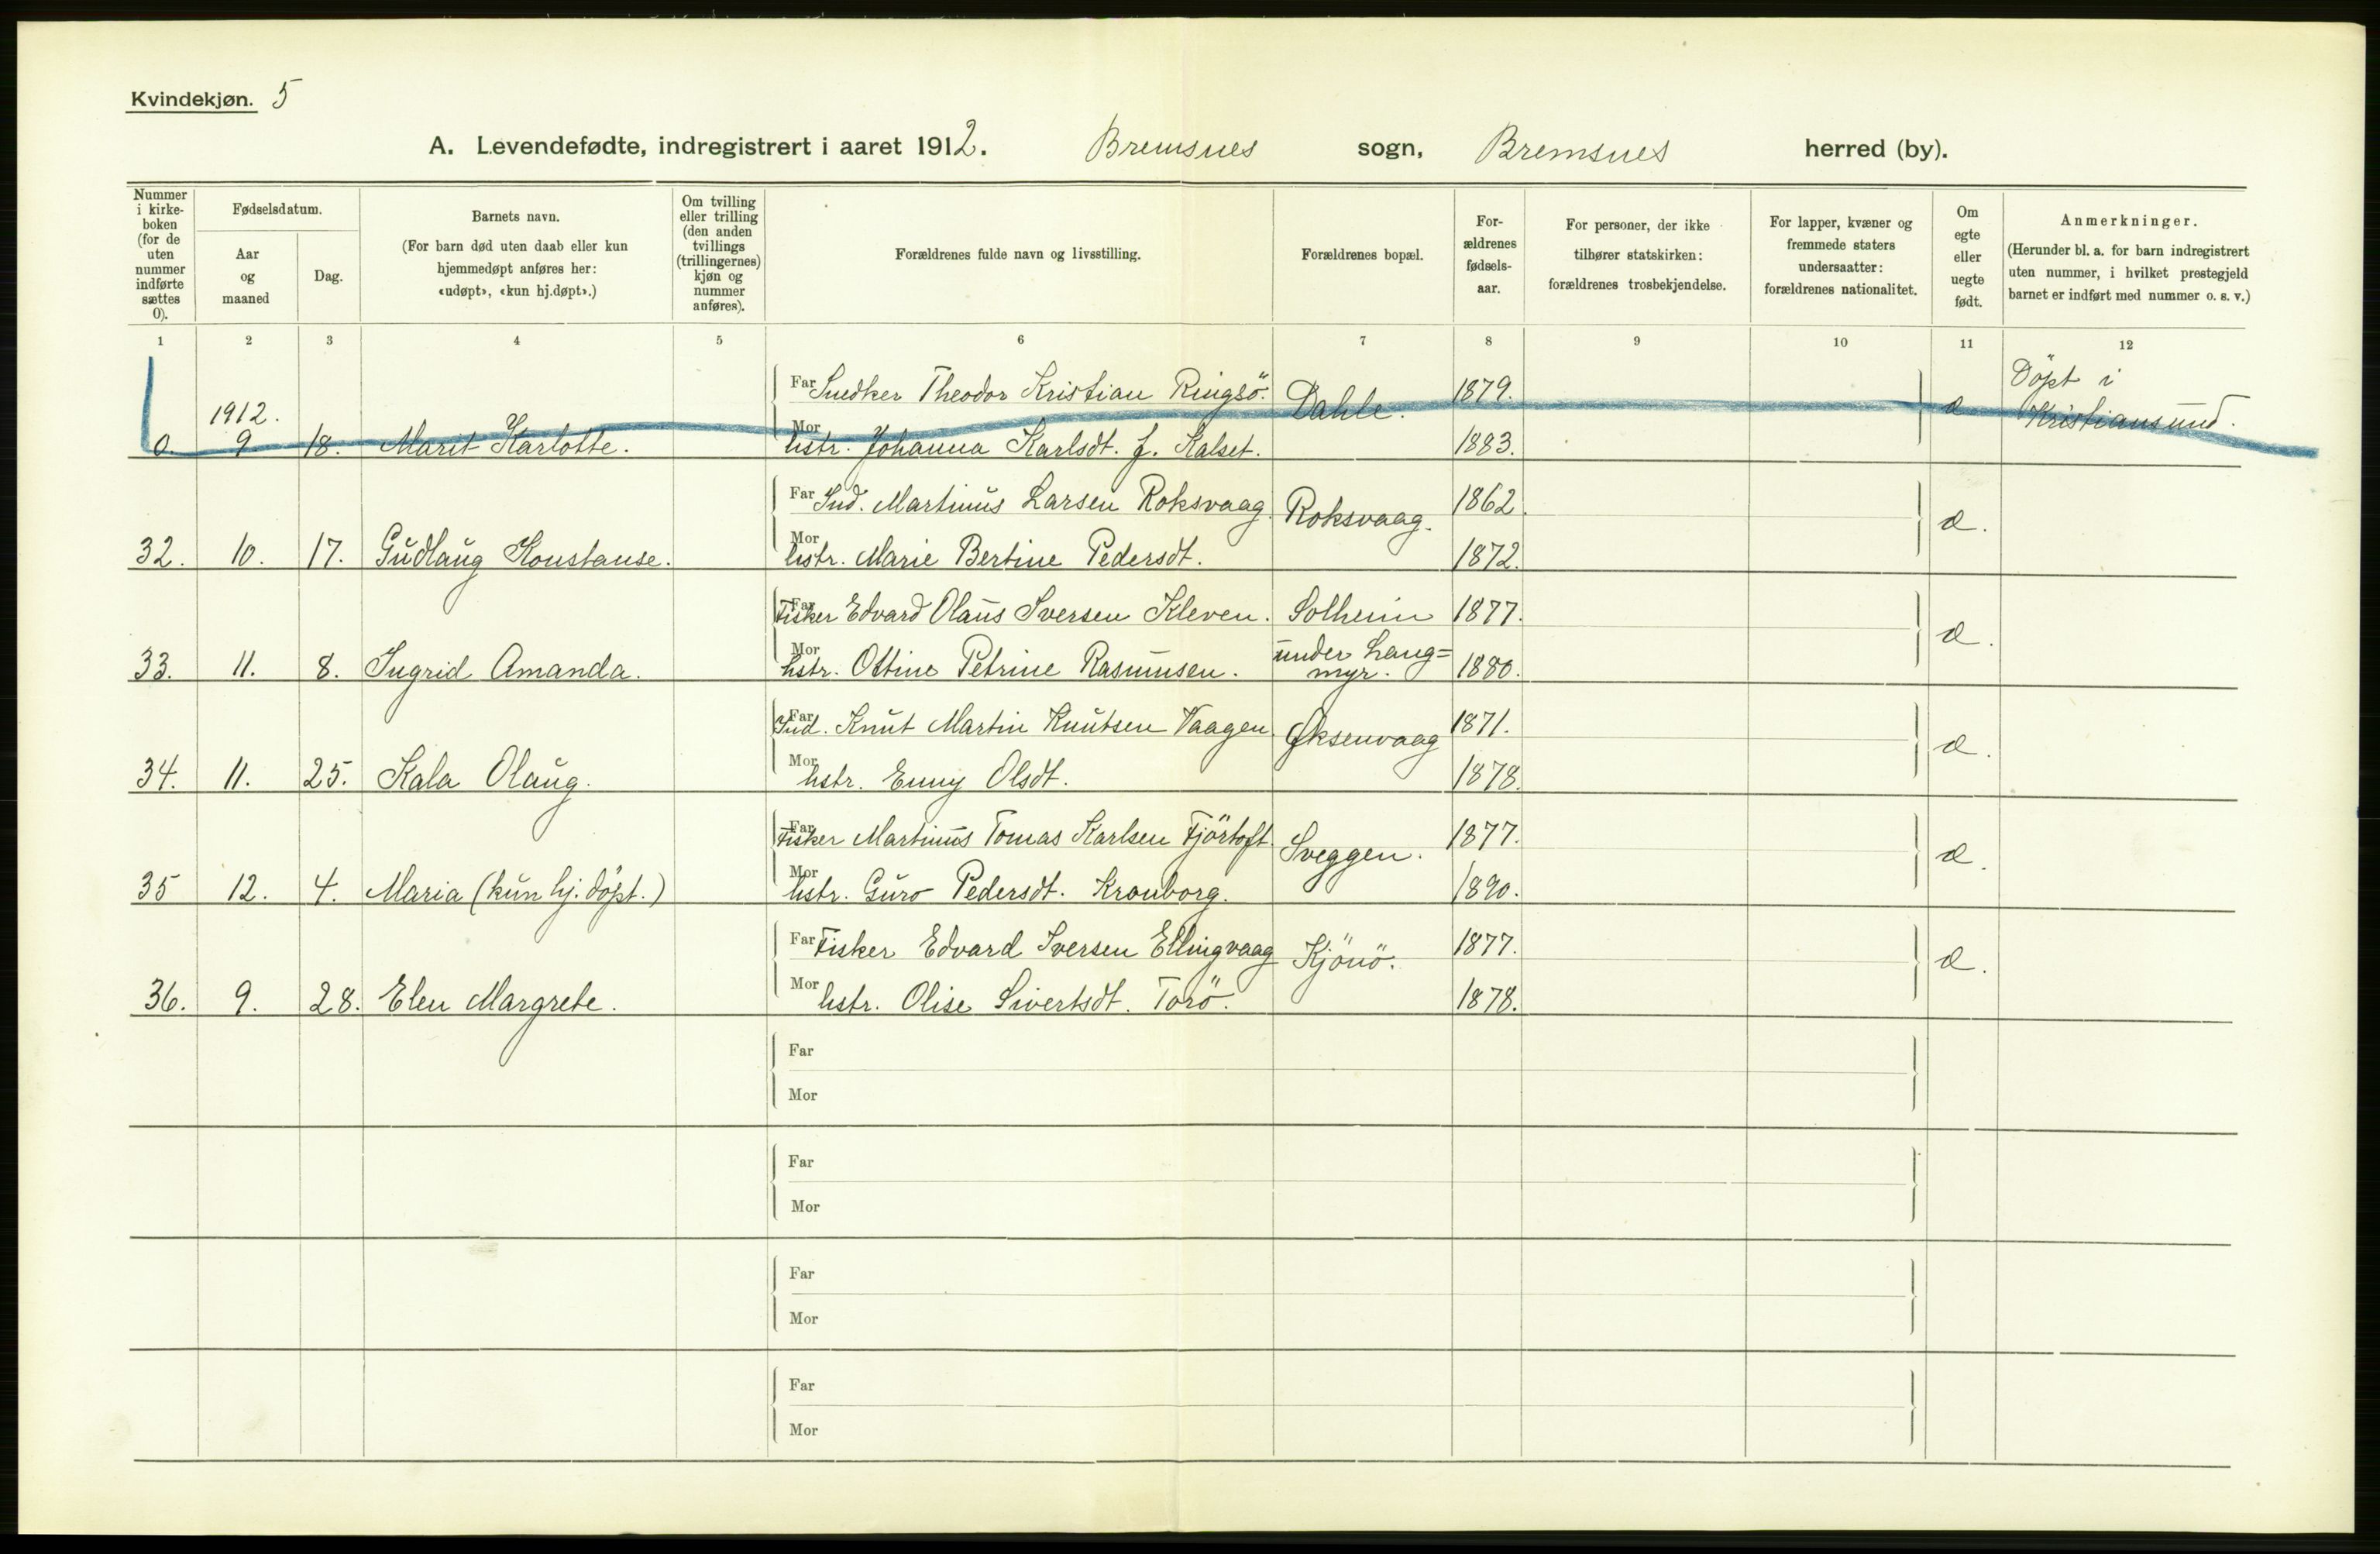 Kvindekjøn. 5
A. Levendefødte, indregistrert i aaret 1912. Bremsnes sogn, Bremsnes herred (by).
Nummer i kirke-boken (for de uten nummer indførte sættes 0).
Fødselsdatum.
Aar og maaned
Dag.
Barnets navn.
(For barn død uten daab eller kun hjemmedøpt anføres her: «udøpt», «kun hj.døpt».)
Om tvilling eller trilling (den anden tvillings (trillingernes) kjøn og nummer anføres).
Forældrenes fulde navn og livsstilling.
Forældrenes bopæl.
For-ældrenes fødsels-aar.
For personer, der ikke tilhører statskirken: forældrenes trosbekjendelse.
For lapper, kvæner og fremmede staters undersaatter: forældrenes nationalitet.
Om egte eller uegte født.
Anmerkninger.
(Herunder bl. a. for barn indregistrert uten nummer, i hvilket prestegjeld barnet er indført med nummer o. s. v.)
1 2 3 4 5 6 7 8 9 10 11 12
Far Snedker Theodor Kristian Ringsö. Dahle. 1879. Döpt i
1912. Kristiansund.
0. 9 18. Marit Karlotte. Mor hstr. Johanna Karlsdt. f. Kalset. 1883.
Far Ind. Martinus Larsen Roksvaag. Roksvaag. 1862.
32. 10. 17. Gudlaug Konstanse. Mor hstr. Marie Bertine Pedersdt. 1872.
Far Fisker Edvard Olaus Iversen Kleven. Solheim 1877.
33. 11. 8. Ingrid Amanda. Mor hstr. Ottine Petrine Rasmussen. under Lang=myr. 1880.
Far Ind. Knut Martin Knutsen Vaagen. Øksenvaag 1871.
34. 11. 25. Kala Olaug. Mor hstr. Enny Olsdt. 1878.
Far Fisker Martinus Tomas Karlsen Fjörtoft. Sveggen. 1877.
35 12. 4. Maria (kun hj. döpt.) Mor hstr. Guro Pedersdt. Kronborg. 1890.
Far Fisker Edvard Iversen Ellingvaag Kjönö. 1877.
36. 9. 28. Elen Margrete. Mor hstr. Olise Sivertsdt. Torö. 1878.
Far
Mor
Far
Mor
Far
Mor
Far
Mor